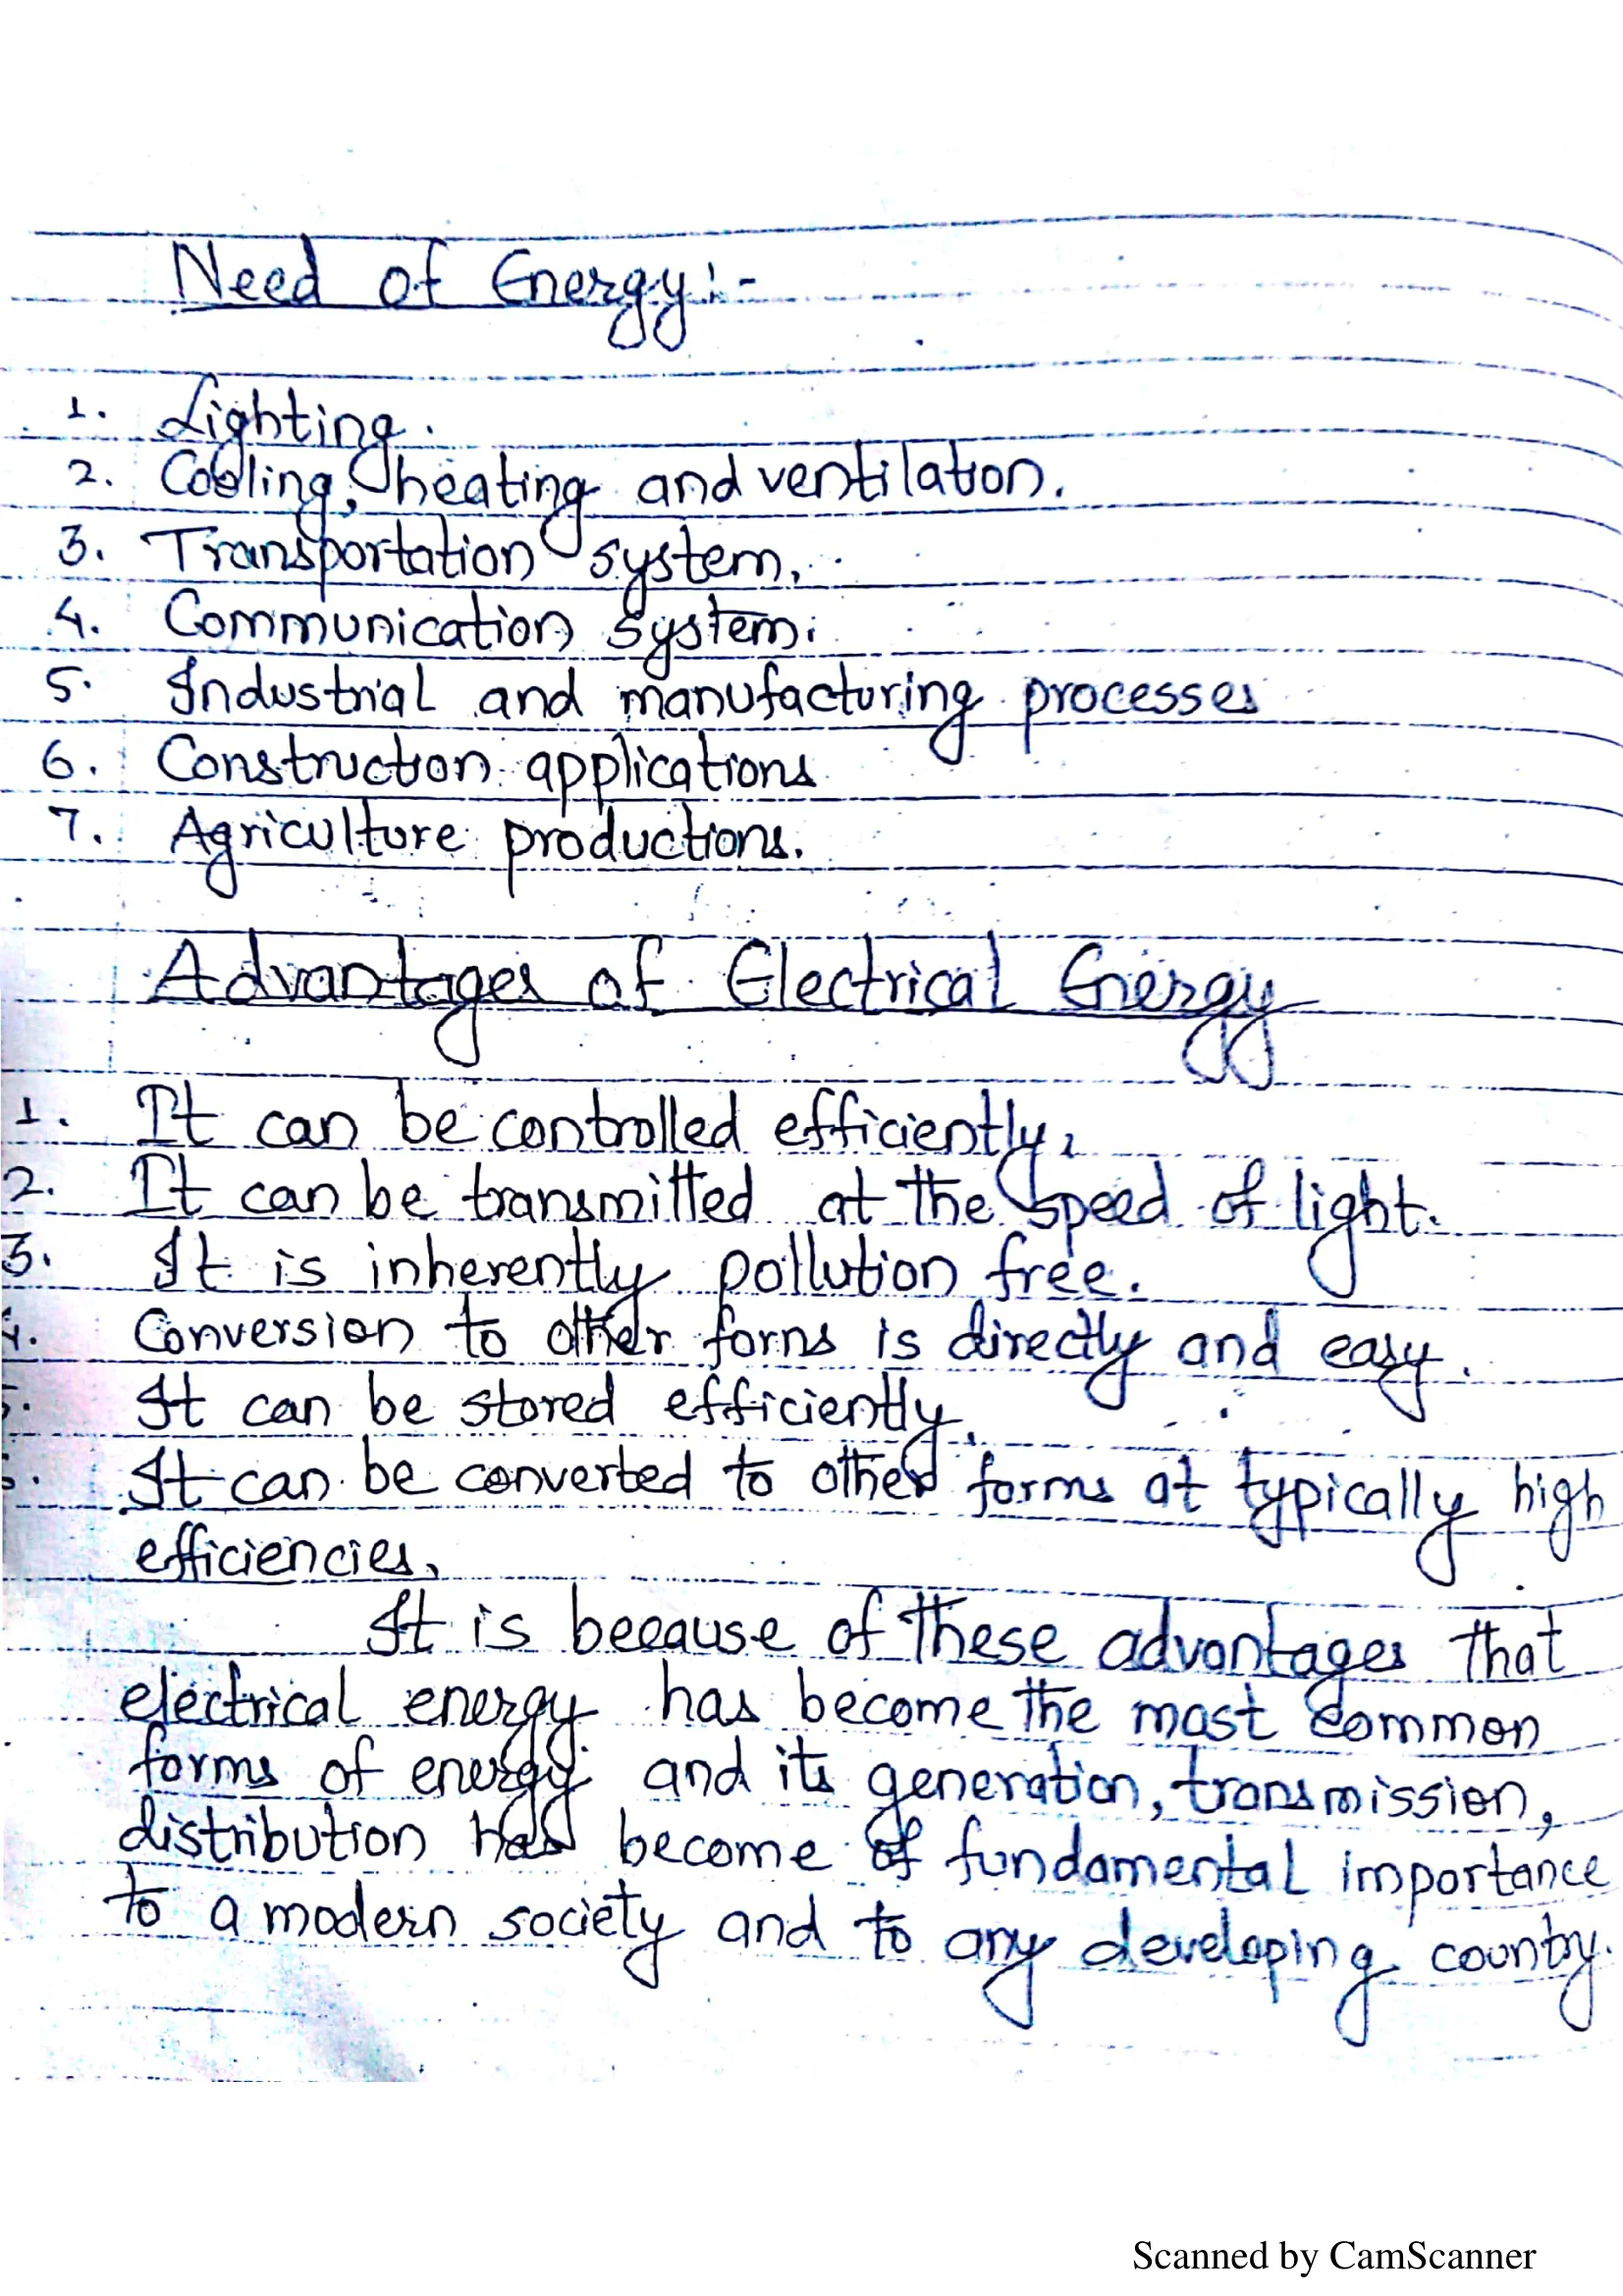 Need of Energy:-
1. Lighting.
2. Cooling, heating and ventilation.
3. Transportation system.
4. Communication system.
5. Industrial and manufacturing processes
6. Construction applications
7. Agriculture productions.
Advantages of Electrical Energy
1. It can be controlled efficiently.
2. It can be transmitted at the speed of light.
3. It is inherently pollution free.
4. Conversion to other forms is directly and easy.
5. It can be stored efficiently.
6. It can be converted to other forms at typically high
efficiencies.
It is because of these advantages that
electrical energy has become the most common
forms of energy and its generation, transmission,
distribution has become of fundamental importance
to a modern society and to any developing country.
Scanned by CamScanner